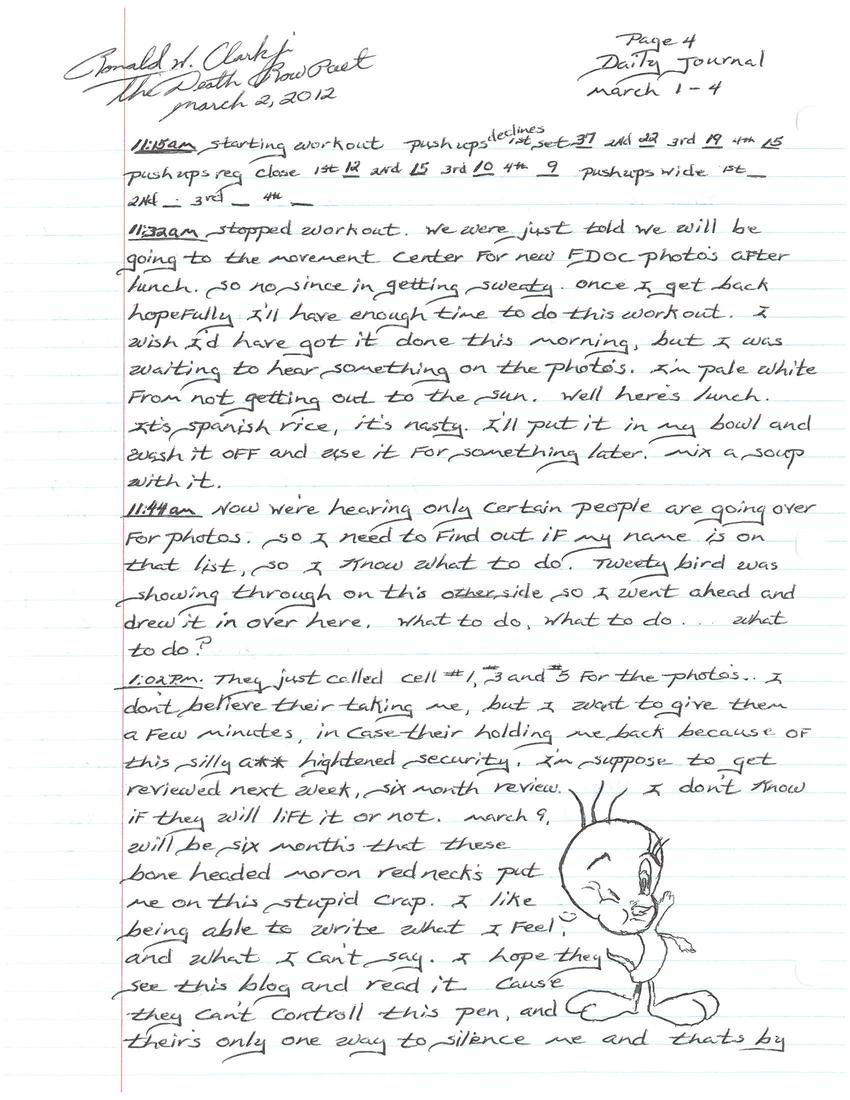 Ronald W. Clark jr
The Death Row Poet
march 2, 2012
Page 4
Daily Journal
march 1-4
11:15am starting workout pushups declines 1st set 37 2nd 22 3rd 19 4th 15
pushups reg close 1st 12 2nd 15 3rd 10 4th 9 pushups wide 1st _
2nd _ 3rd _ 4th _
11:32am stopped workout. We were just told we will be
going to the movement Center For new FDOC photo's aFter
lunch. so no since in getting sweaty. once I get back
hopeFully I'll have enough time to do this workout. I
wish I'd have got it done this morning, but I was
waiting to hear something on the photo's. I'm pale white
From not getting out to the sun. Well here's lunch.
It's spanish rice, it's nasty. I'll put it in my bowl and
wash it oFF and use it For something later. mix a soup
with it.
11:44am Now we're hearing only certain people are going over
For photos. so I need to Find out iF my name is on
that list, so I Know what to do. Tweety bird was
showing through on this other side so I went ahead and
drew it in over here. What to do, What to do... what
to do?
1:02Pm. They just called cell #1, #3 and #5 For the photo's.. I
don't believe their taking me, but I want to give them
a Few minutes, in case their holding me back because oF
this silly a** hightened security. I'm suppose to get
reviewed next week, six month review. I don't Know
iF they will liFt it or not. march 9,
will be six months that these
bone headed moron redneck's put
me on this stupid crap. I like
being able to write what I Feel,
and what I can't say. I hope they
see this blog and read it. Cause
they can't controll this pen, and
their's only one way to silence me and thats by